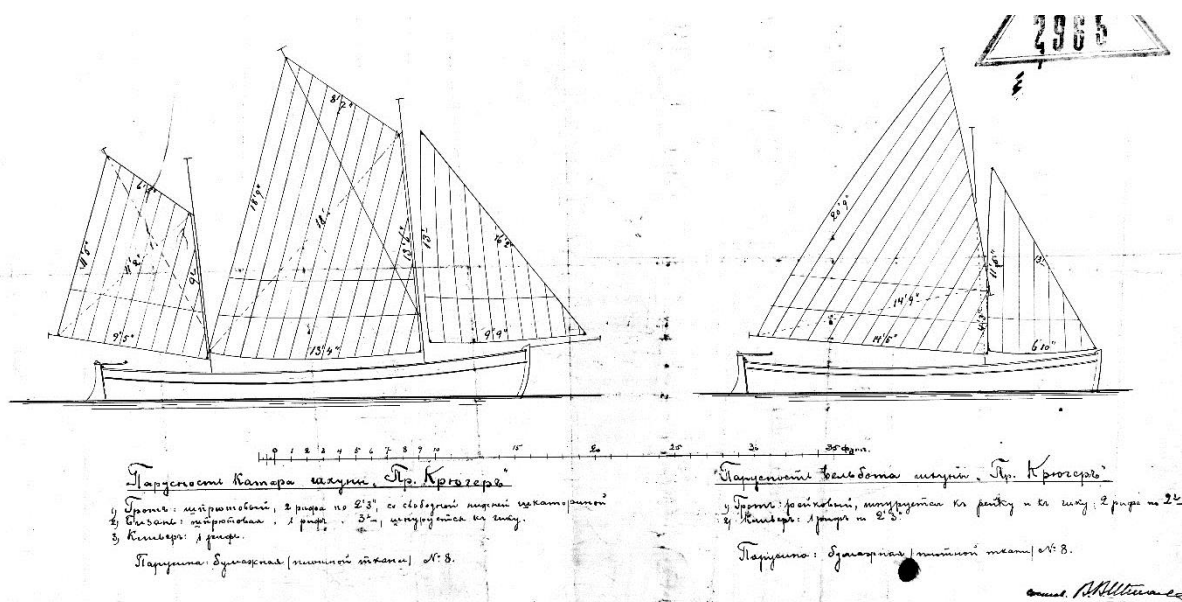 2965
8'2"
18'9"
18'
13'6"
13'
16'2"
9'9"
13'4"
6'2"
11'8"
11'2"
9'
9'5"
20'9"
14'9"
11'6"
13'
14'5"
6'10"
0 1 2 3 4 5 6 7 8 9 10 15 20 25 30 35 фут.
Парусность Катера шхуны "Пр. Крюгеръ"
1) Гротъ: шпрютовый, 2 рифа по 2'3", со свободной нижней шкаториной
2) Бизань: шпрютовая, 1 рифъ 3', шнуруется къ гику.
3) Кливеръ: 1 рифъ.
Парусина: бумажная (плотной ткани) № 8.
"Парусность Вельбота шхуны "Пр. Крюгеръ"
1) Гротъ: рейковый, шнуруется къ рейку и къ гику; 2 рифа по 2'
2) Кливеръ: 1 рифъ въ 2'3"
Парусина: бумажная (плотной ткани) № 8.